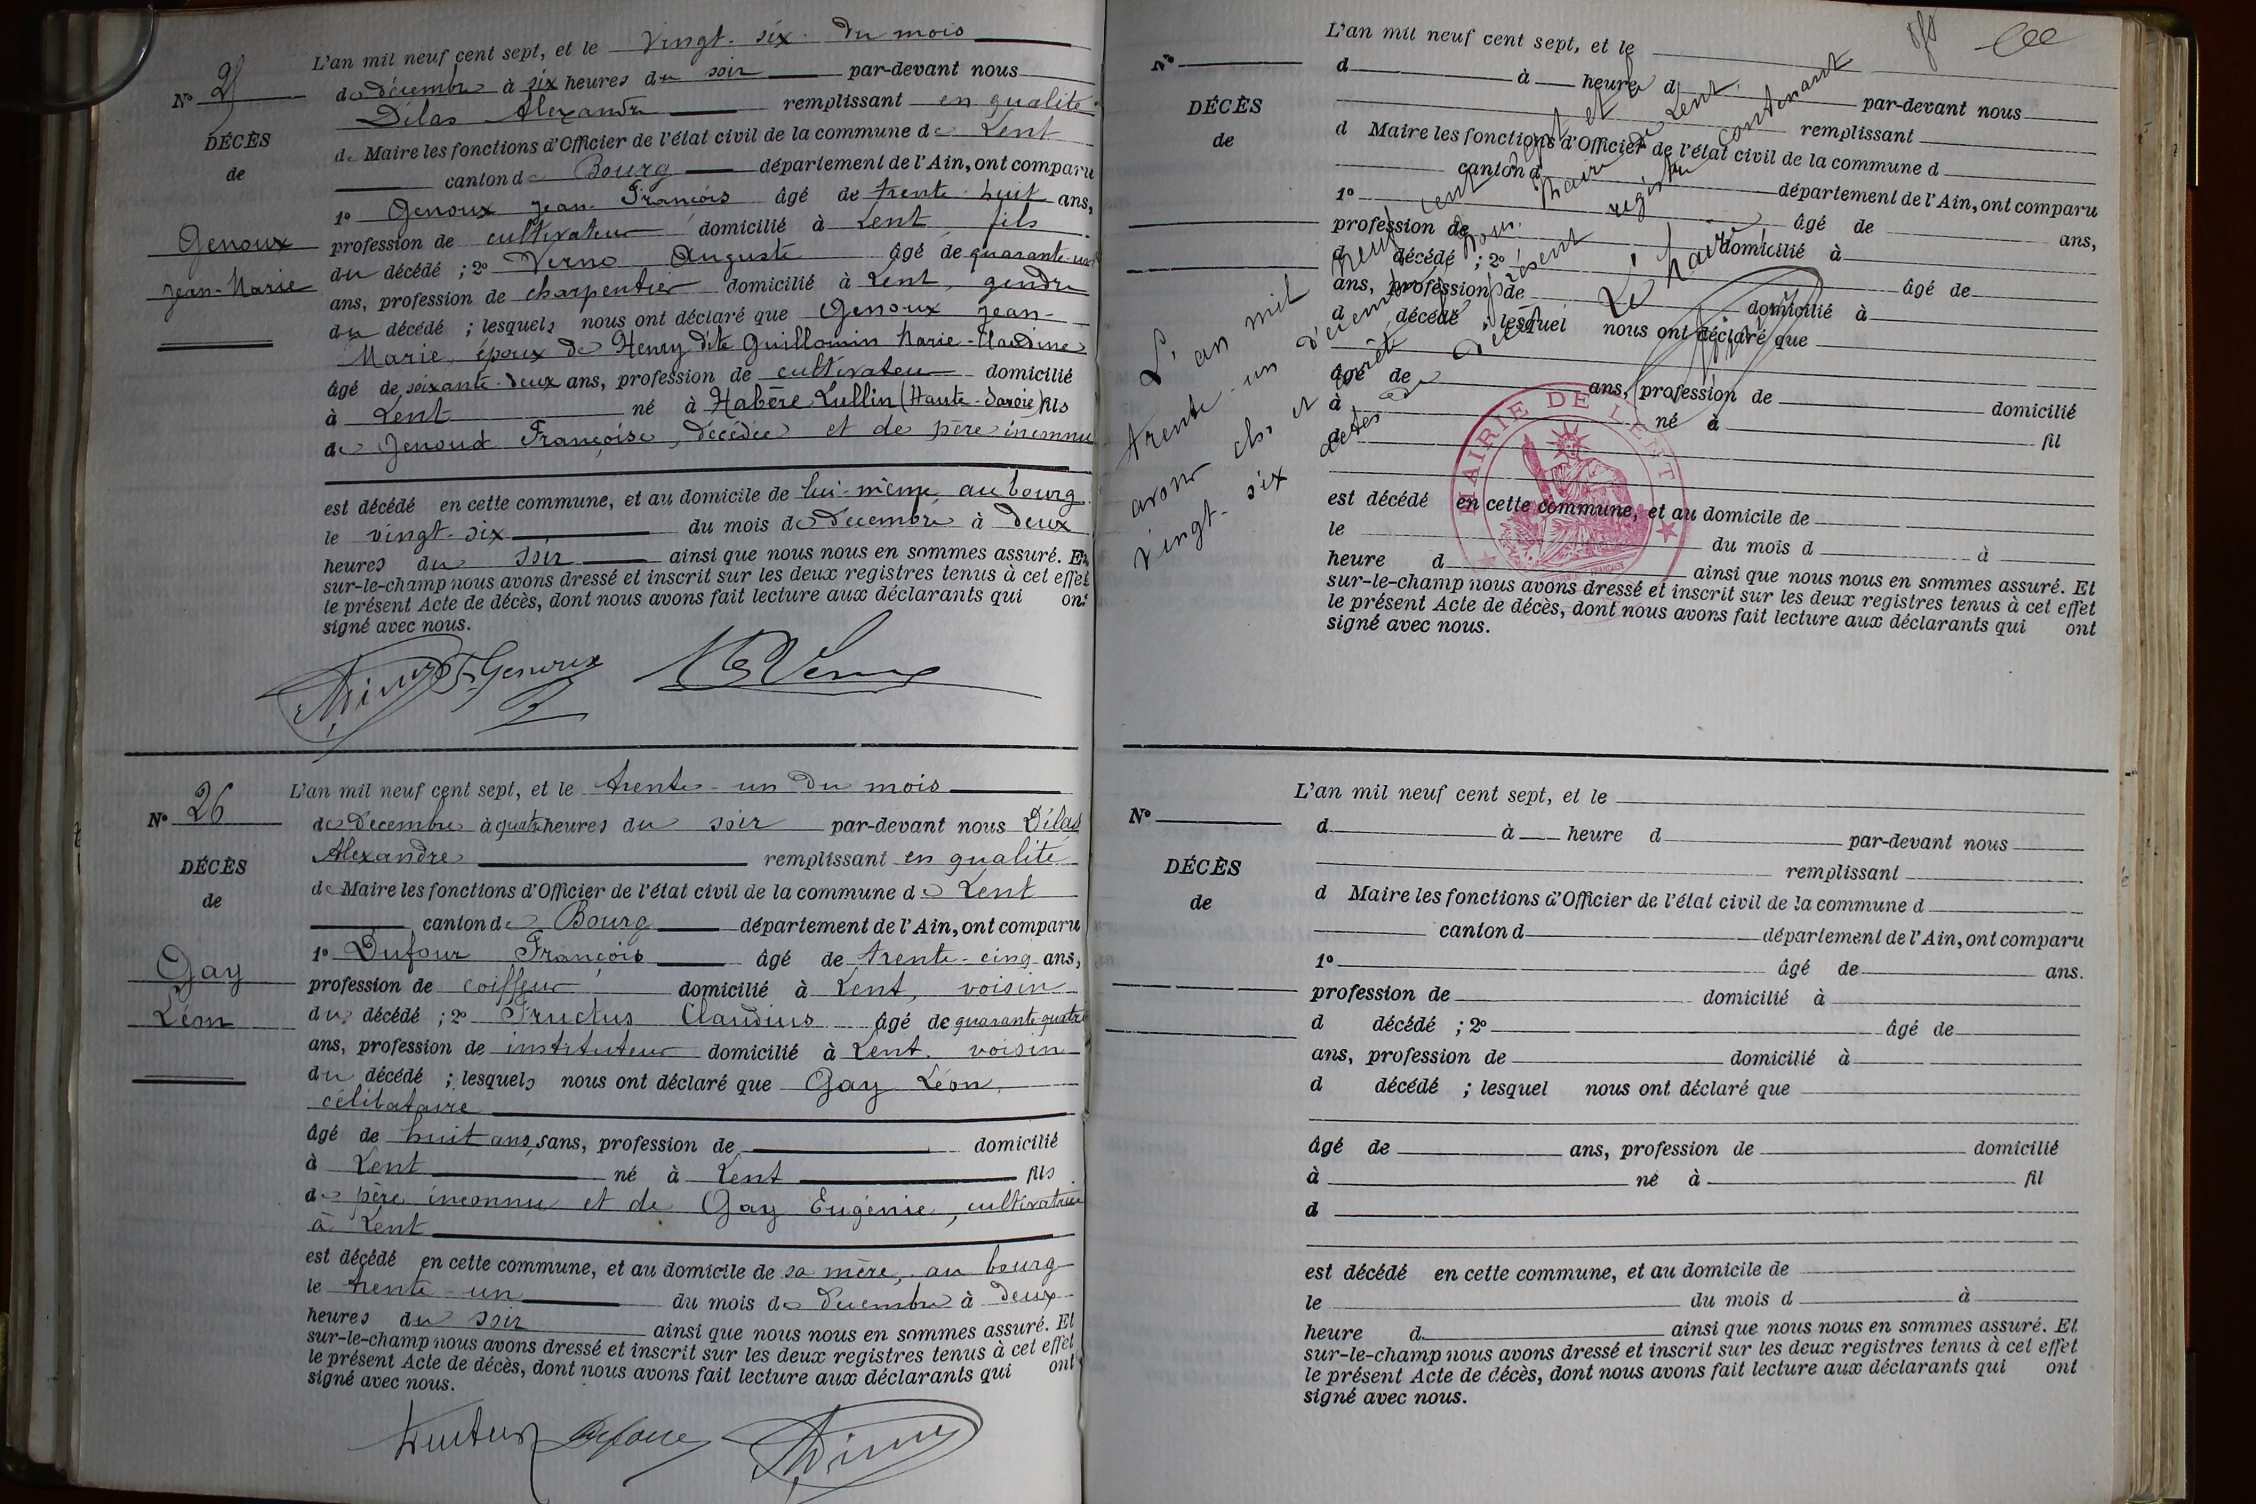 L'an mil neuf cent sept, et le vingt-six du mois
de décembre à six heures du soir par-devant nous
Nº 25
Délas Alexandre remplissant en qualité
DÉCÈS
de Maire les fonctions d'Officier de l'état civil de la commune de Lent
de
canton de Bourg département de l'Ain, ont comparu
1º Genoux Jean-François âgé de trente-huit ans,
Genoux
profession de cultivateur domicilié à Lent, fils
du décédé ; 2º Verno Auguste âgé de quarante-un
Jean-Marie
ans, profession de charpentier domicilié à Lent, gendre
du décédé ; lesquels nous ont déclaré que Genoux Jean-
Marie, époux de Henry dite Guillomin Marie-Claudine
âgé de soixante-deux ans, profession de cultivateur domicilié
à Lent né à Habère Lullin (Haute-Savoie) fils
de Genoud Françoise, décédée et de père inconnu
est décédé en cette commune, et au domicile de lui-même, au bourg
le vingt-six du mois de décembre à deux
heures du soir ainsi que nous nous en sommes assuré. Et
sur-le-champ nous avons dressé et inscrit sur les deux registres tenus à cet effet
le présent Acte de décès, dont nous avons fait lecture aux déclarants qui ont
signé avec nous.
F. Genoux
Verno
L'an mil neuf cent sept, et le trente-un du mois
Nº 26
de décembre à quatre heures du soir par-devant nous Délas
Alexandre remplissant en qualité
DÉCÈS
de Maire les fonctions d'Officier de l'état civil de la commune de Lent
de
canton de Bourg département de l'Ain, ont comparu
1º Dufour François âgé de trente-cinq ans,
Gay
profession de coiffeur domicilié à Lent, voisin
Léon
du décédé ; 2º Fructus Claudius âgé de quarante-quatre
ans, profession de instituteur domicilié à Lent, voisin
du décédé ; lesquels nous ont déclaré que Gay Léon,
célibataire
âgé de huit ans, sans, profession de domicilié
à Lent né à Lent fils
de père inconnu et de Gay Eugénie, cultivatrice
à Lent
est décédé en cette commune, et au domicile de sa mère, au bourg
le trente-un du mois de décembre à deux
heures du soir ainsi que nous nous en sommes assuré. Et
sur-le-champ nous avons dressé et inscrit sur les deux registres tenus à cet effet
le présent Acte de décès, dont nous avons fait lecture aux déclarants qui ont
signé avec nous.
Fructus Dufour
L'an mil neuf cent sept, et le
Nº
d à heure d par-devant nous
DÉCÈS
remplissant
de
d Maire les fonctions d'Officier de l'état civil de la commune d
canton d département de l'Ain, ont comparu
1º âgé de ans,
profession de domicilié à
d décédé ; 2º âgé de
ans, profession de domicilié à
d décédé ; lesquel nous ont déclaré que
âgé de ans, profession de domicilié
à né à fil
d
est décédé en cette commune, et au domicile de
le du mois d à
heure d ainsi que nous nous en sommes assuré. Et
sur-le-champ nous avons dressé et inscrit sur les deux registres tenus à cet effet
le présent Acte de décès, dont nous avons fait lecture aux déclarants qui ont
signé avec nous.
L'an mil neuf cent sept et le
trente-un décembre, Nous, Maire de Lent,
avons clos et arrêté le présent registre contenant
vingt-six actes de décès
Le Maire
MAIRIE DE LENT
L'an mil neuf cent sept, et le
Nº
d à heure d par-devant nous
remplissant
DÉCÈS
d Maire les fonctions d'Officier de l'état civil de la commune d
de
canton d département de l'Ain, ont comparu
1º âgé de ans.
profession de domicilié à
d décédé ; 2º âgé de
ans, profession de domicilié à
d décédé ; lesquel nous ont déclaré que
âgé de ans, profession de domicilié
à né à fil
d
est décédé en cette commune, et au domicile de
le du mois d à
heure d ainsi que nous nous en sommes assuré. Et
sur-le-champ nous avons dressé et inscrit sur les deux registres tenus à cet effet
le présent Acte de décès, dont nous avons fait lecture aux déclarants qui ont
signé avec nous.